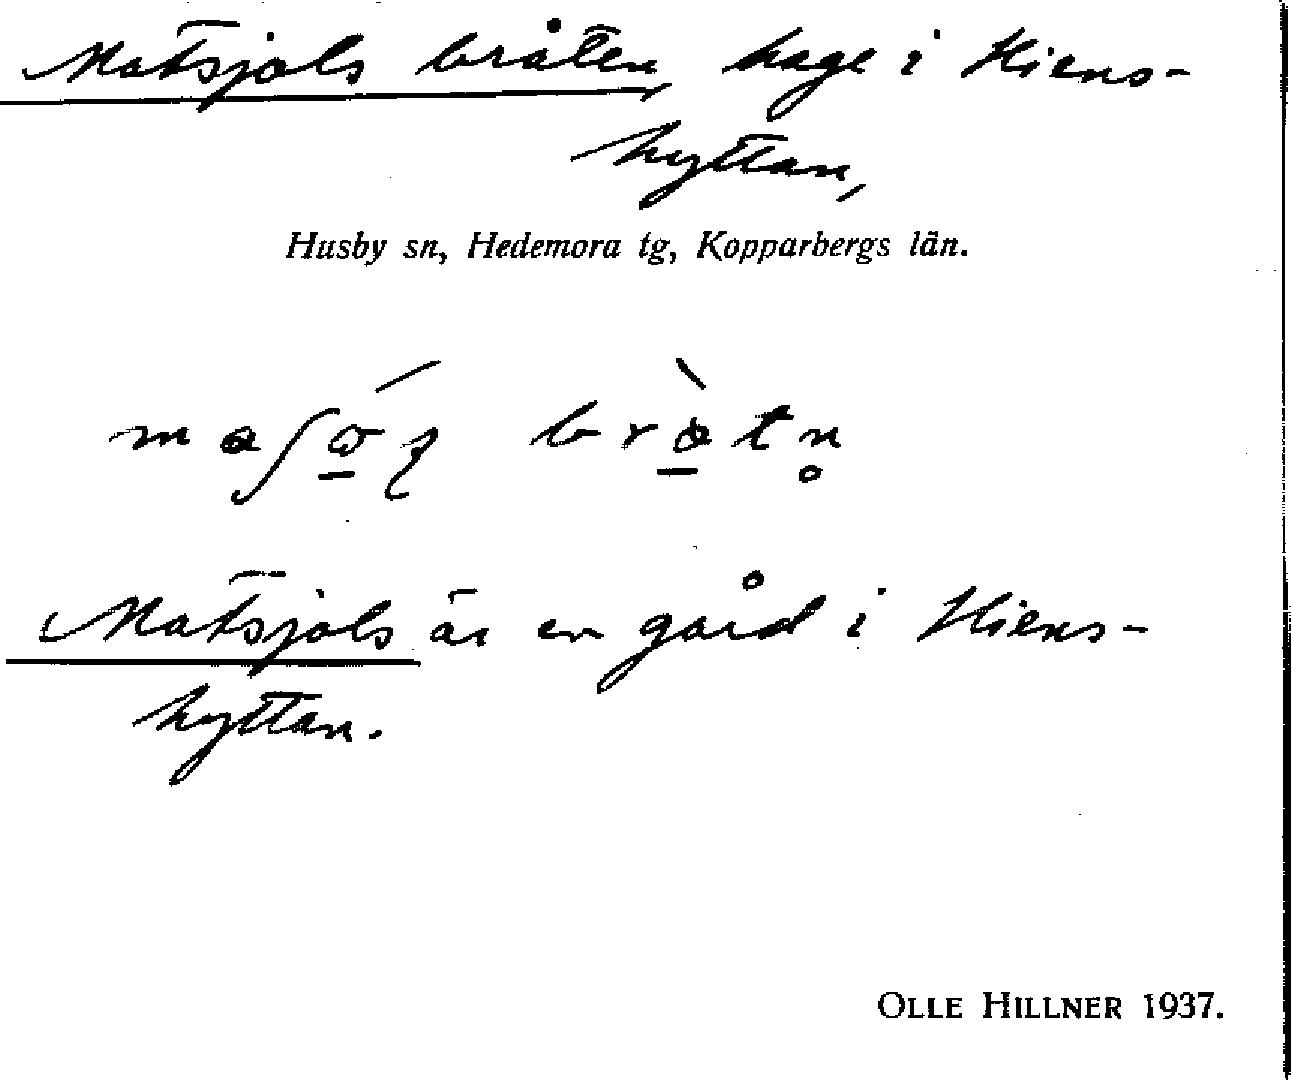 Matsjols bråten, hage i Hiens-
hyttan,
Husby sn, Hedemora tg, Kopparbergs län.
Matsjols är en gård i Hiens-
hyttan.
OLLE HILLNER 1937.